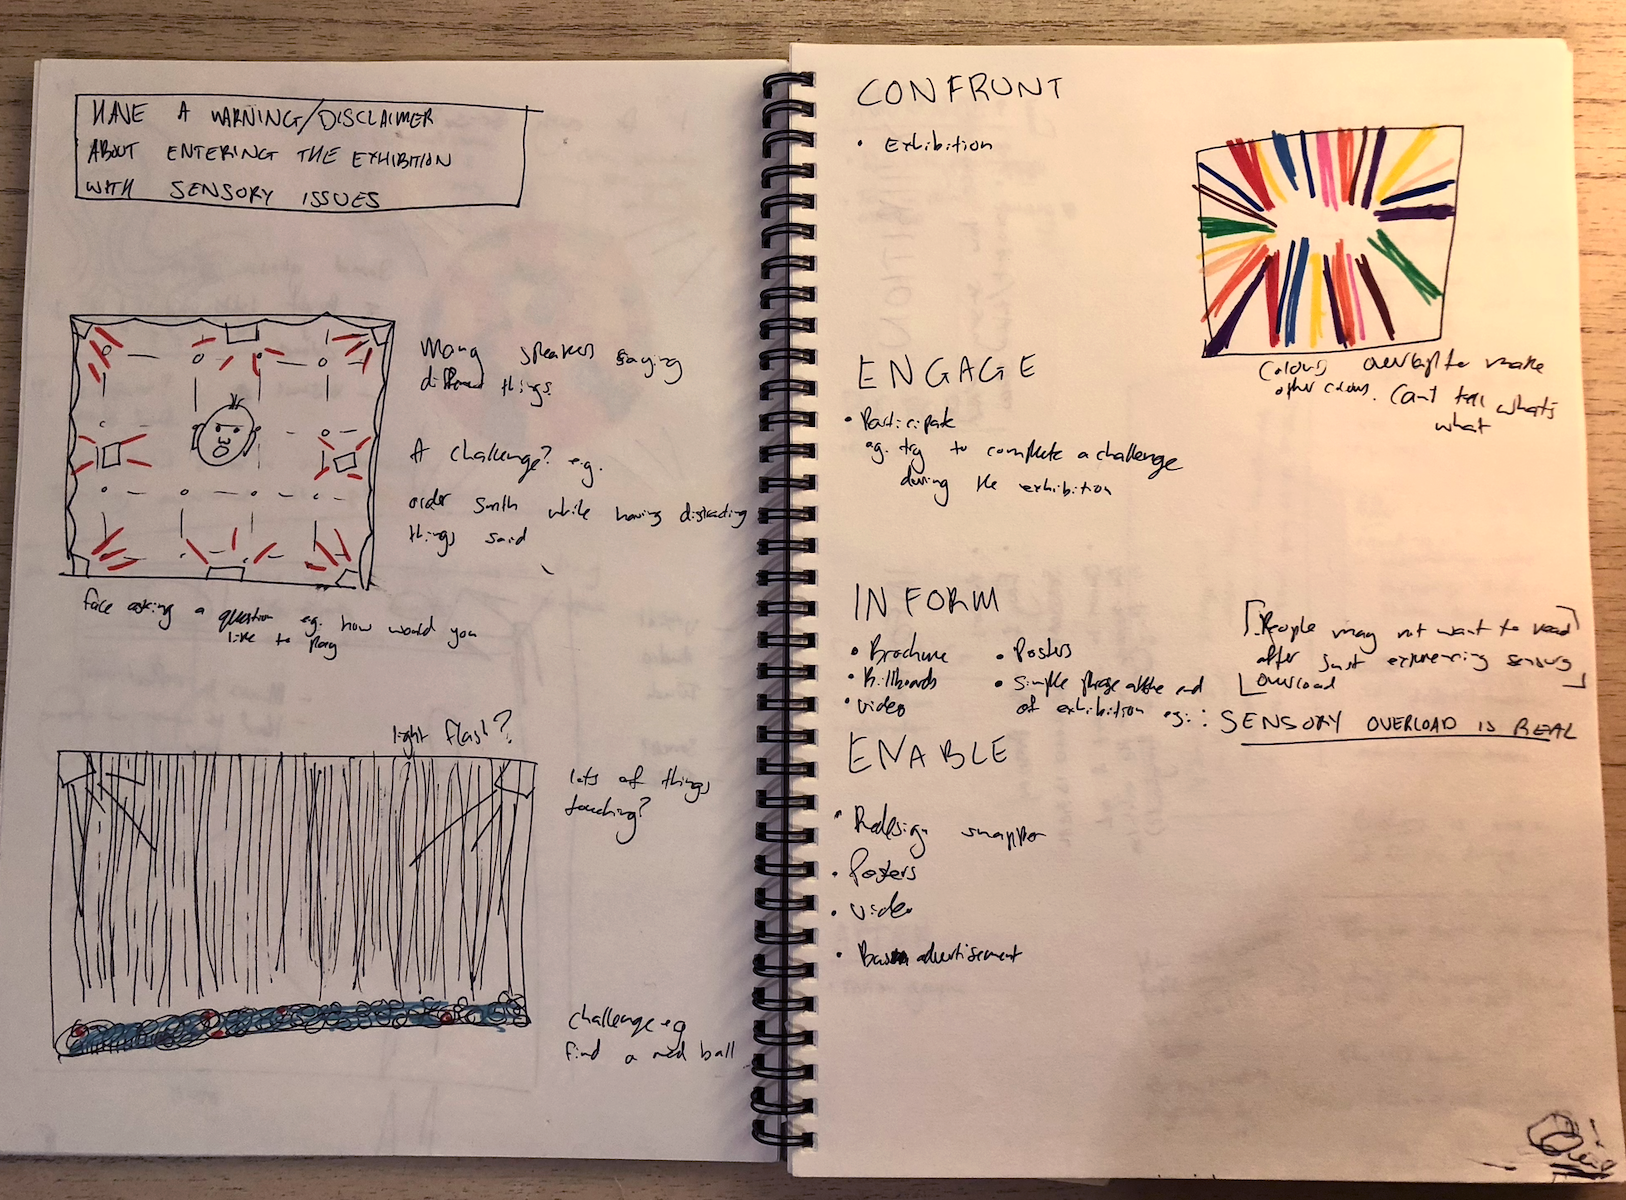 HAVE A WARNING/DISCLAIMER
ABOUT ENTERING THE EXHIBITION
WITH SENSORY ISSUES
Many speakers saying
different things.
A challenge? e.g.
order smth while having distracting
things said
face asking a question e.g. how would you
like to pay
light flash?
lots of things
touching?
challenge eg
find a red ball
CONFRONT
• Exhibition
Colours overlap to make
other colours. Can't tell what's
what
ENGAGE
• Participate
eg. try to complete a challenge
during the exhibition
INFORM
• Brochure
• Billboards
• Video
• Posters
• Simple phrase at the end
of exhibition eg:
[People may not want to read
after just experiencing sensory
overload]
SENSORY OVERLOAD IS REAL
ENABLE
• Redesign snapper
• Posters
• Video
• advertisement